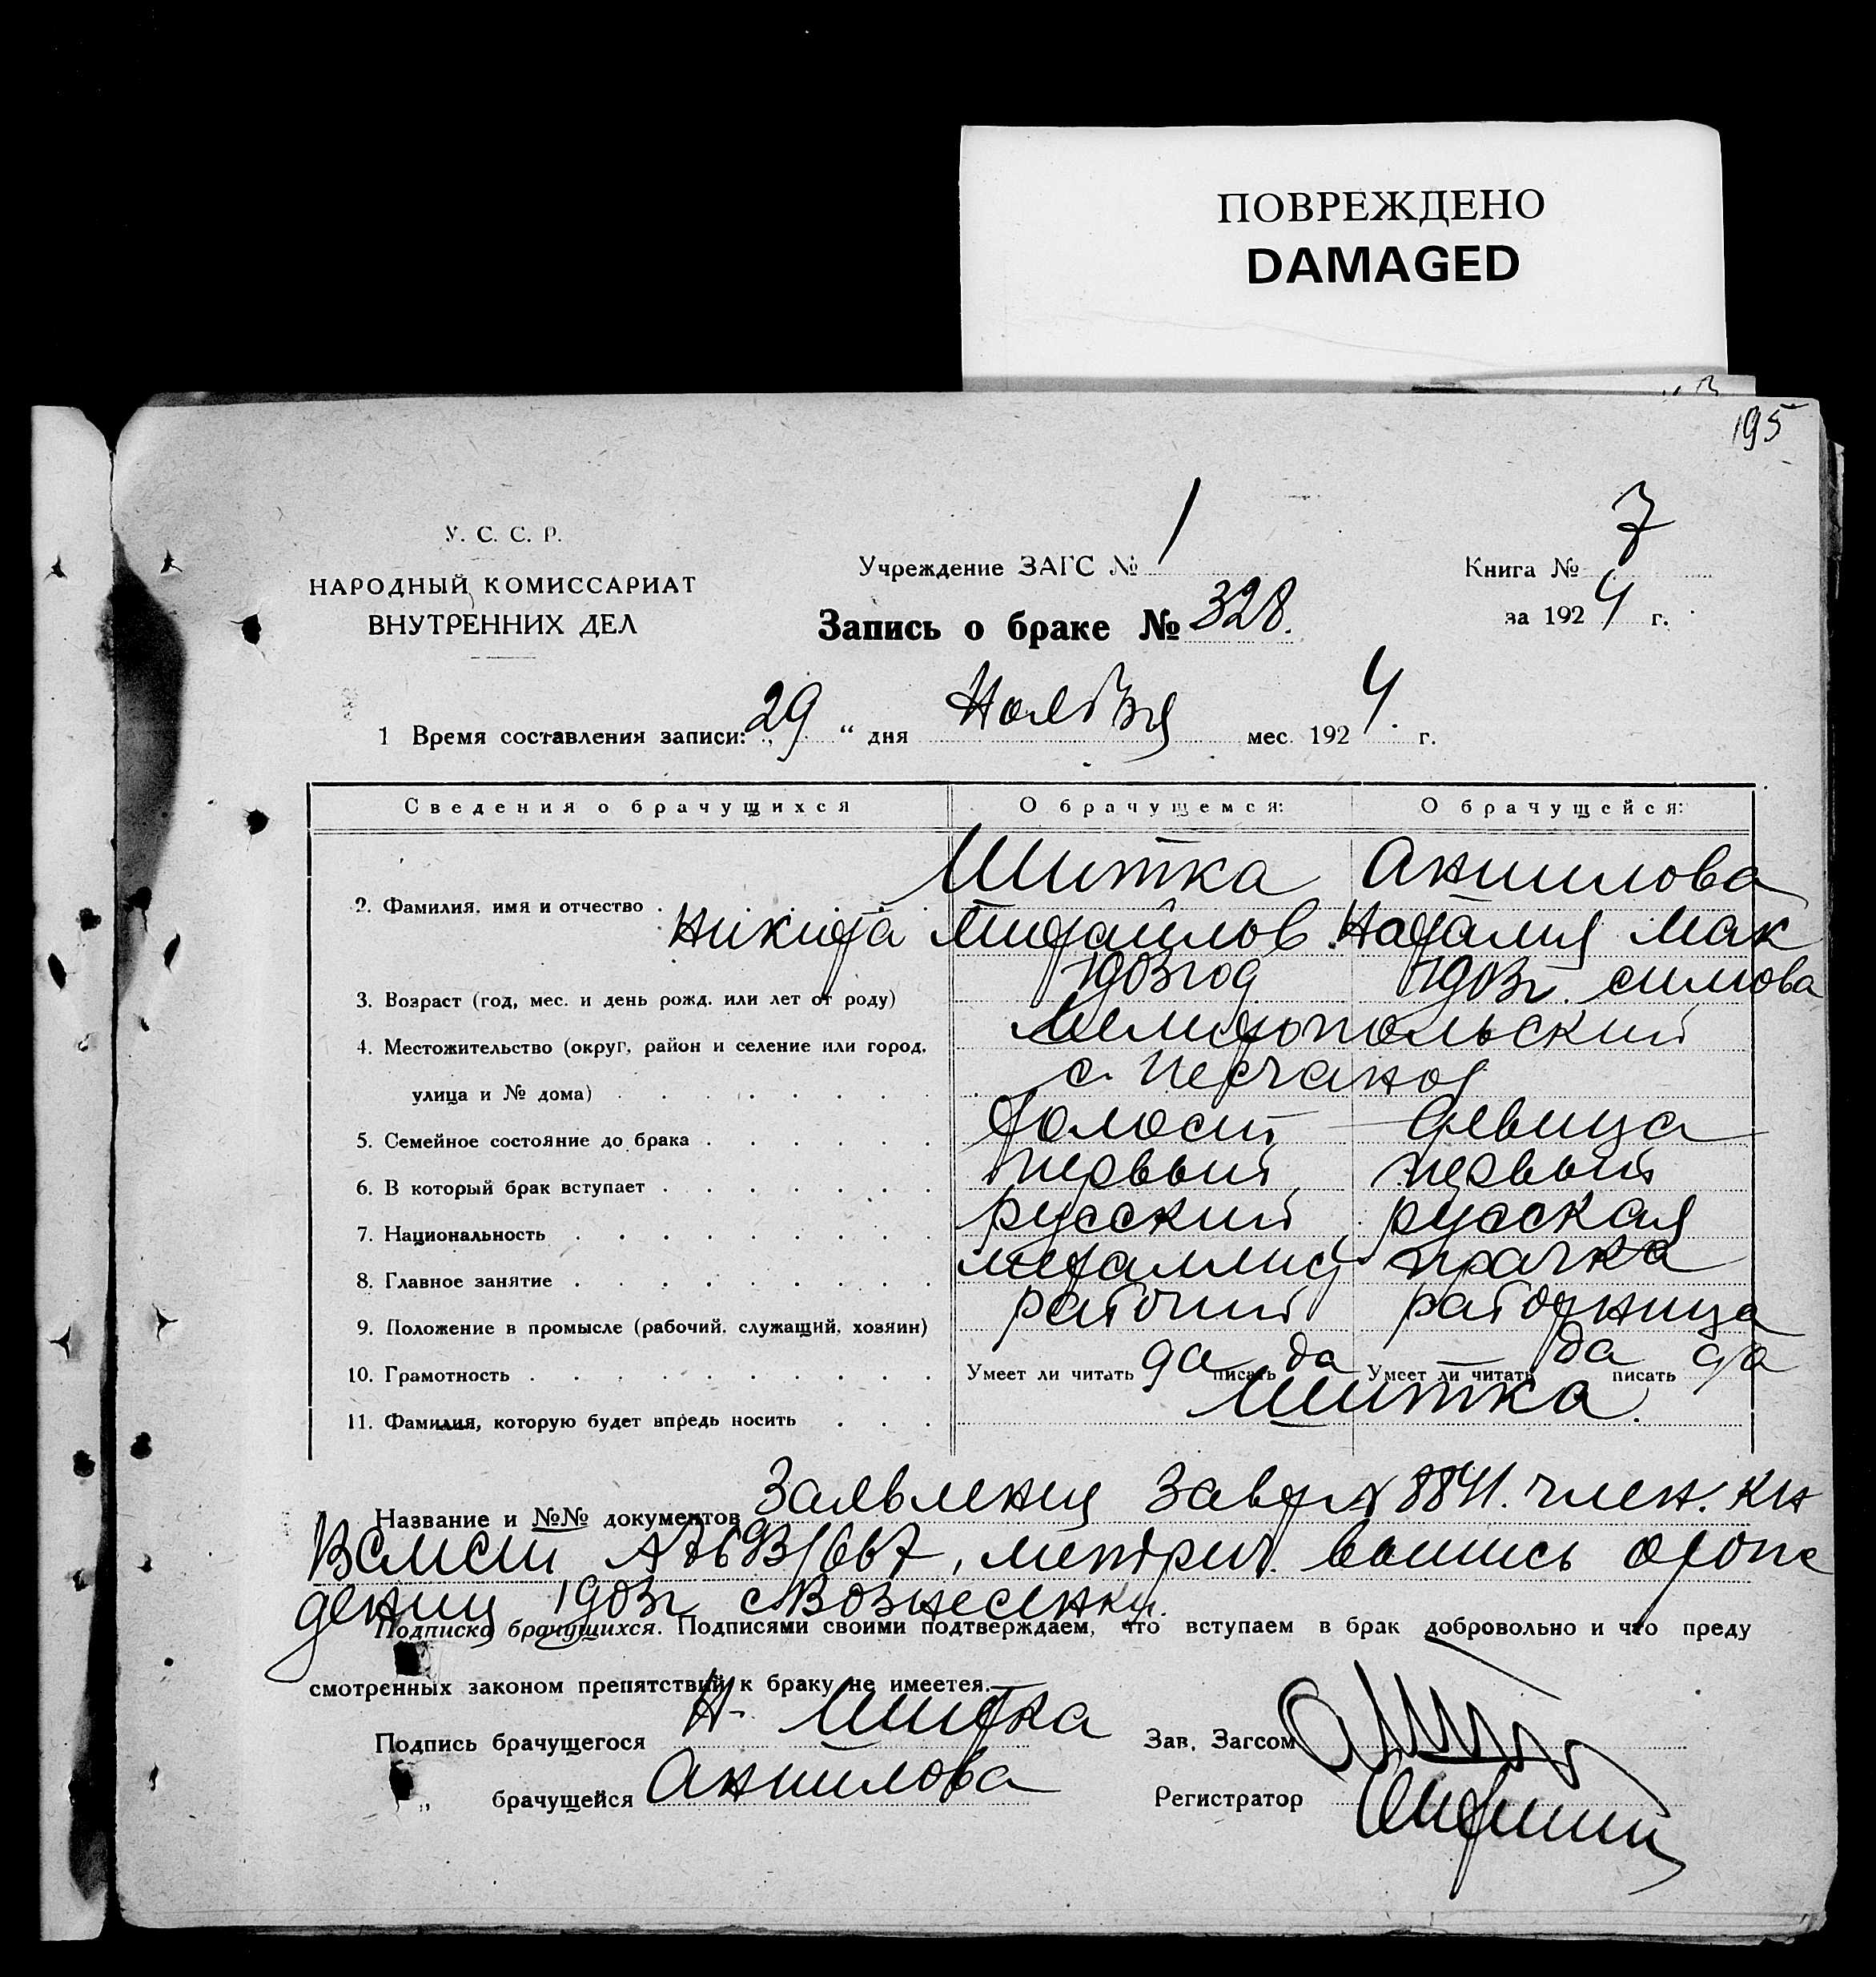 ПОВРЕЖДЕНО
DAMAGED
195
У. С. С. Р.
НАРОДНЫЙ КОМИССАРИАТ
ВНУТРЕННИХ ДЕЛ
Учреждение ЗАГС № 1
Книга № 7
Запись о браке № 328.
за 1924 г.
1 Время составления записи: „29“ дня Ноября мес. 1924 г.
Сведения о брачущихся О брачущемся: О брачущейся:
Шитка Анишлова
2. Фамилия, имя и отчество
Никита Михайлов Наталия Мак
1903 год 1903 г. симова
3. Возраст (год, мес. и день рожд. или лет от роду)
4. Местожительство (округ, район и селение или город, Мелитопольский
улица и № дома) с. Песчаное
5. Семейное состояние до брака Холост девица
6. В который брак вступает первый первый
7. Национальность русский русская
8. Главное занятие металлист прачка
9. Положение в промысле (рабочий, служащий, хозяин) рабочий работница
10. Грамотность Умеет ли читать да писать да Умеет ли читать да писать да
11. Фамилия, которую будет впредь носить Шитка.
Название и №№ документов Заявления 8841. член. кн
метрич. выпись о рож
дении 1903 г с Вознесенки.
Подписка брачущихся. Подписями своими подтверждаем, что вступаем в брак добровольно и что преду
смотренных законом препятствий к браку не имеется.
Подпись брачущегося Н. Шитка Зав. Загсом
„ брачущейся Анишлова Регистратор